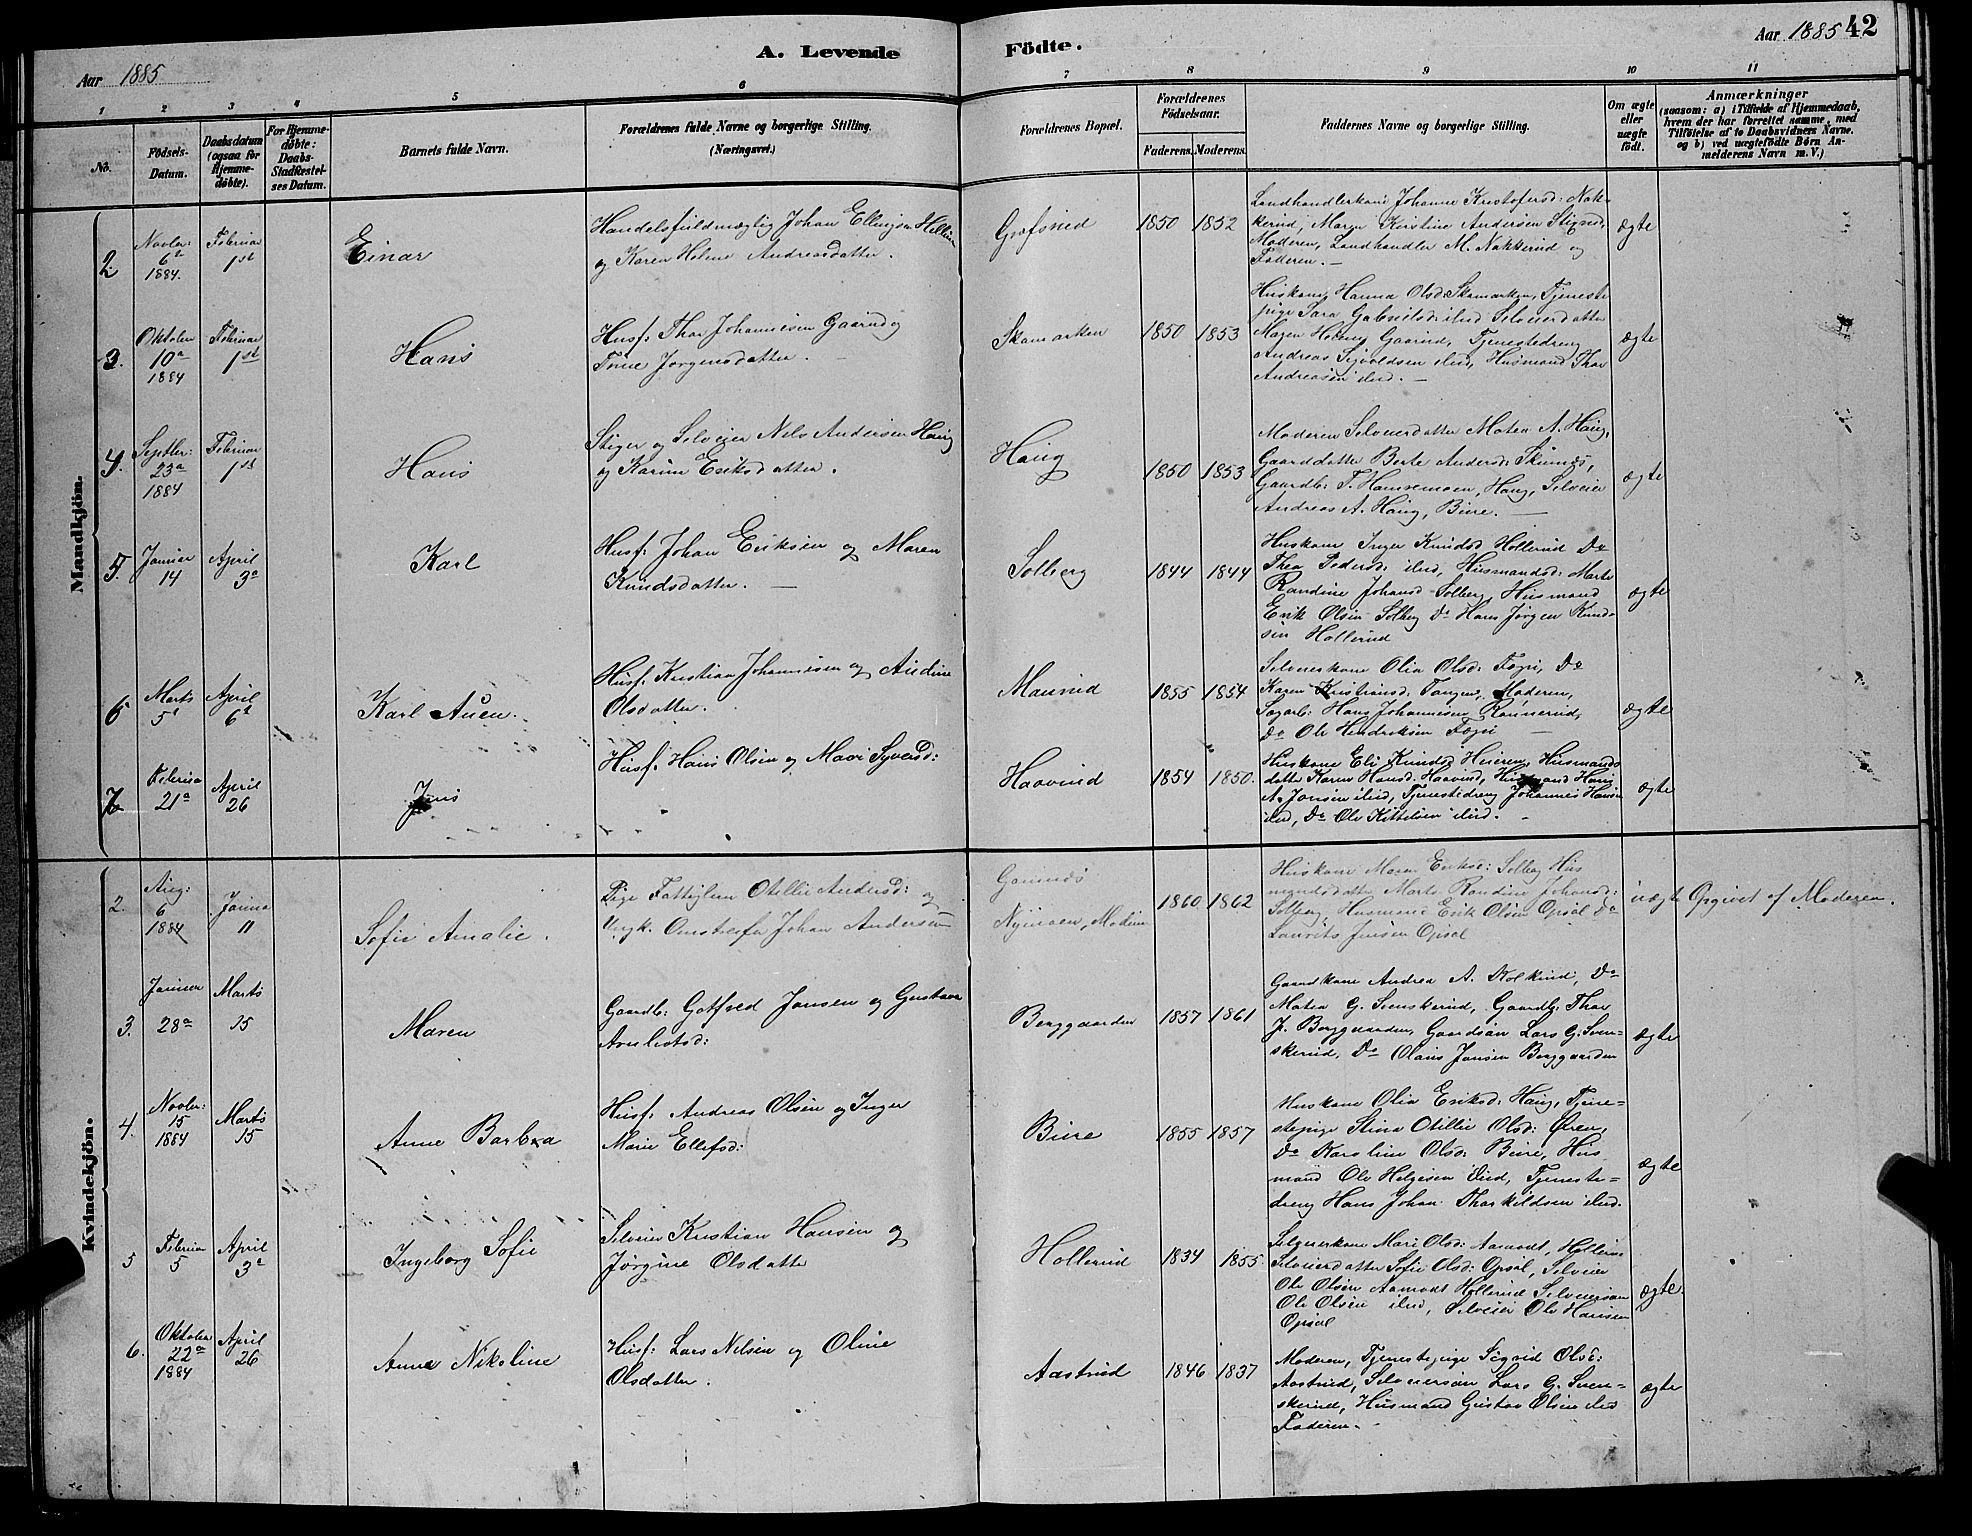 Aar 1885
A. Levende
Födte.
Aar 1885
42
1 2 3 4 5 6 7 8 9 10 11
No.
Födsels-
Datum.
Daabsdatum
(ogsaa for
Hjemme-
döbte).
For Hjemme-
döbte:
Daabs-
Stadfæstel-
ses Datum.
Barnets fulde Navn.
Forældrenes fulde Navne og borgerlige Stilling.
(Næringsvei.)
Forældrenes Bopæl.
Forældrenes
Födselsaar.
Faderens.
Moderens.
Faddernes Navne og borgerlige Stilling.
Om ægte
eller
uægte
födt.
Anmærkninger
(saasom: a) i Tilfælde af Hjemmedaab,
hvem der har forrettet samme, med
Tilföielse af to Daabsvidners Navne.
og b) ved uægtefödte Börn An-
melderens Navn m.V.)
Mandkjön.
2
Novbr:
6te
1884.
Februar
1st
Einar
Handelsfuldmægtig Johan Ellingsen
og Karen Helene Andreasdatter.
1850
1852
Landhandlerkone Johanne Kristofersd: Nak-
kerud, Maren Kirstine Andersen
Moderen, Landhandler M. Nakkerud og
Faderen. —
ægte
3.
Oktober
10de
1884
Februar
1st
Hans
Husf: Thor Johannesen Gaarud og
Jørgensdatter. —
Skamarken
1850
1853
Huskone Hanna Olsd: Skamarken, Tjeneste
pige Sara Gabrielsd: ibid Selveierdatter
Gaarud, Tjenestedreng
Andreas Sigvoldsen ibid, Husmand Thor
Andreasen ibid. —
ægte
4.
Septbr:
23de
1884
Februar
1st
Hans
Stiger og Selveier Nils Andersen Haug
og Karine Eriksdatter.
Haug
1850
1853
Moderen Selveierdatter Matea A. Haug,
Gaarddatter Berte Andersd: Skinnes,
Gaardb: T. Hansemoen, Haug, Selveier
Andreas A. Haug, Bure. —
ægte
5.
Januar
14
April
3de
Karl
Husf: Johan Eriksen og Maren
Knudsdatter. —
Solberg
1844
1844
Huskone Inger Knudsd Hollerud Do
Thea Pedersd: ibid, Husmandsd: Marte
Randine Johansd Solberg, Husmand
Erik Olsen Solberg Do Hans Jørgen Knud-
sen Hollerud
ægte
6
Marts
5te
April
6te
Karl Auen.
Husf: Kristian Johannesen og Andine
Olsdatter.
Maurud
1855
1854
Selveierkone Olia Olsd: Do
Karen Kristiansd: Tangen, Moderen,
Sagarb: Hans Johannesen Rønnerud,
Do Ole Hendriksen —
ægte
7
Februar
21de
April
26
Jens
Husf: Hans Olsen og Mari Syversd:
Haavrud
1854
1850.
Huskone Eli Knudsd Huseren, Husmands
datter Karen Hansd. Haavrud, Husmand Hans
A. Jonsen ibid, Tjenestedreng Johannes Hansen
ibid, Do Ole Kittelsen ibid. -
ægte
Kvindekjön.
2.
Aug:
6
1884
Januar
11
Sofie Amalie.
Pige Otillie Andersd: og
Ungk. Johan Andersen
Nymoen, Modum
1860
1862
Huskone Maren Eriksd: Solberg Hus
mandsdatter Marte Randine Johansd:
Solberg, Husmand Erik Olsen Opsal Do
Laurits Jensen Opsal
uægte
Opgivet af Moderen.
3.
Januar
28de
Marts
15
Maren
Gaardb: Gotfred Jansen og Gustava
Berggaarden
1857
1861
Gaardkone Andrea A. Kolkind, Do
Matea G. Svenskerud, Gaardb: Thor
J. Berggaarden, Gaardsøn Lars G. Sven-
skerud, Do Olaus Jansen Berggaarden
ægte
4.
Novbr:
15
1884
Marts
15
Anne Barbra
Husf: Andreas Olsen og Inger
Marie Ellefsd:
Bure
1855
1857
Huskone Olia Eriksd: Haug, Tjene-
stepige Stina Otillie Olsd: Øren,
Do Karoline Olsd: Bure, Hus
mand Ole Helgesen ibid, Tjeneste-
dreng Hans Johan Thorkildsen ibid.
ægte
5
Februar
5
April
3de
Ingeborg Sofie
Selveier Kristian Hansen og
Jørgine Olsdatter
Hollerud
1834
1855.
Selveierkone Mari Olsd: Aamodt, Hollerud
Selveierdatter Sofie Olsd: Opsal, Selveier
Ole Olsen Aamodt Hollerud Selveiersøn
Ole Olsen ibid, Selveier Ole Hansen
Opsal
ægte
6.
Oktober
22de
1884
April
26
Anne Nikoline
Husf: Lars Nilsen og Oline
Olsdatter.
Aastrud
1846
1837
Moderen, Tjenestepige Sigrid Olsd:
Aastrud, Selveiersøn Lars G. Sven-
skerud, Husmand Gustav Olsen ibid
Faderen. -
ægte